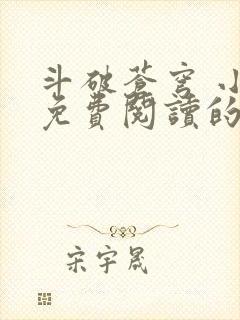 斗破蒼穹 小
免費閱讀的
宋宇晟